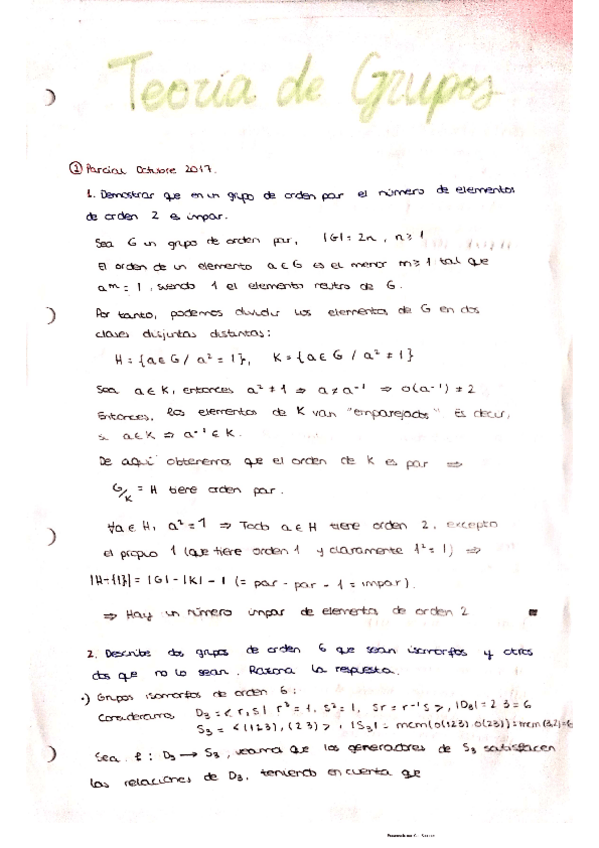 Teoría de Grupos
① Parcial Octubre 2017.
1. Demostrar que en un grupo de orden par el número de elementos
de orden 2 es impar.
Sea G un grupo de orden par, |G| = 2n, n ≥ 1
El orden de un elemento a ∈ G es el menor m ≥ 1 tal que
a^m = 1, siendo 1 el elemento neutro de G.
Por tanto, podemos dividir los elementos de G en dos
clases disjuntas distintas:
H = {a ∈ G / a² = 1}, K = {a ∈ G / a² ≠ 1}
Sea a ∈ K, entonces a² ≠ 1 ⇒ a ≠ a⁻¹ ⇒ o(a⁻¹) ≠ 2
Entonces, los elementos de K van "emparejados". Es decir,
si a ∈ K ⇒ a⁻¹ ∈ K.
De aquí obtenemos que el orden de K es par ⇒
G/K = H tiene orden par.
∀a ∈ H, a² = 1 ⇒ Todo a ∈ H tiene orden 2, excepto
el propio 1 (que tiene orden 1 y claramente 1² = 1) ⇒
|H-{1}| = |G| - |K| - 1 (= par - par - 1 = impar).
⇒ Hay un número impar de elementos de orden 2
2. Describe dos grupos de orden 6 que sean isomorfos y otros
dos que no lo sean. Razona la respuesta.
•) Grupos isomorfos de orden 6:
Consideramos D₃ = < r, s | r³ = 1, s² = 1, sr = r⁻¹s >, |D₃| = 2·3 = 6
S₃ = <(123), (23)>, |S₃| = mcm(o(123), o(23)) = mcm(3,2) = 6
Sea f: D₃ → S₃, veamos que los generadores de S₃ satisfacen
las relaciones de D₃, teniendo en cuenta que